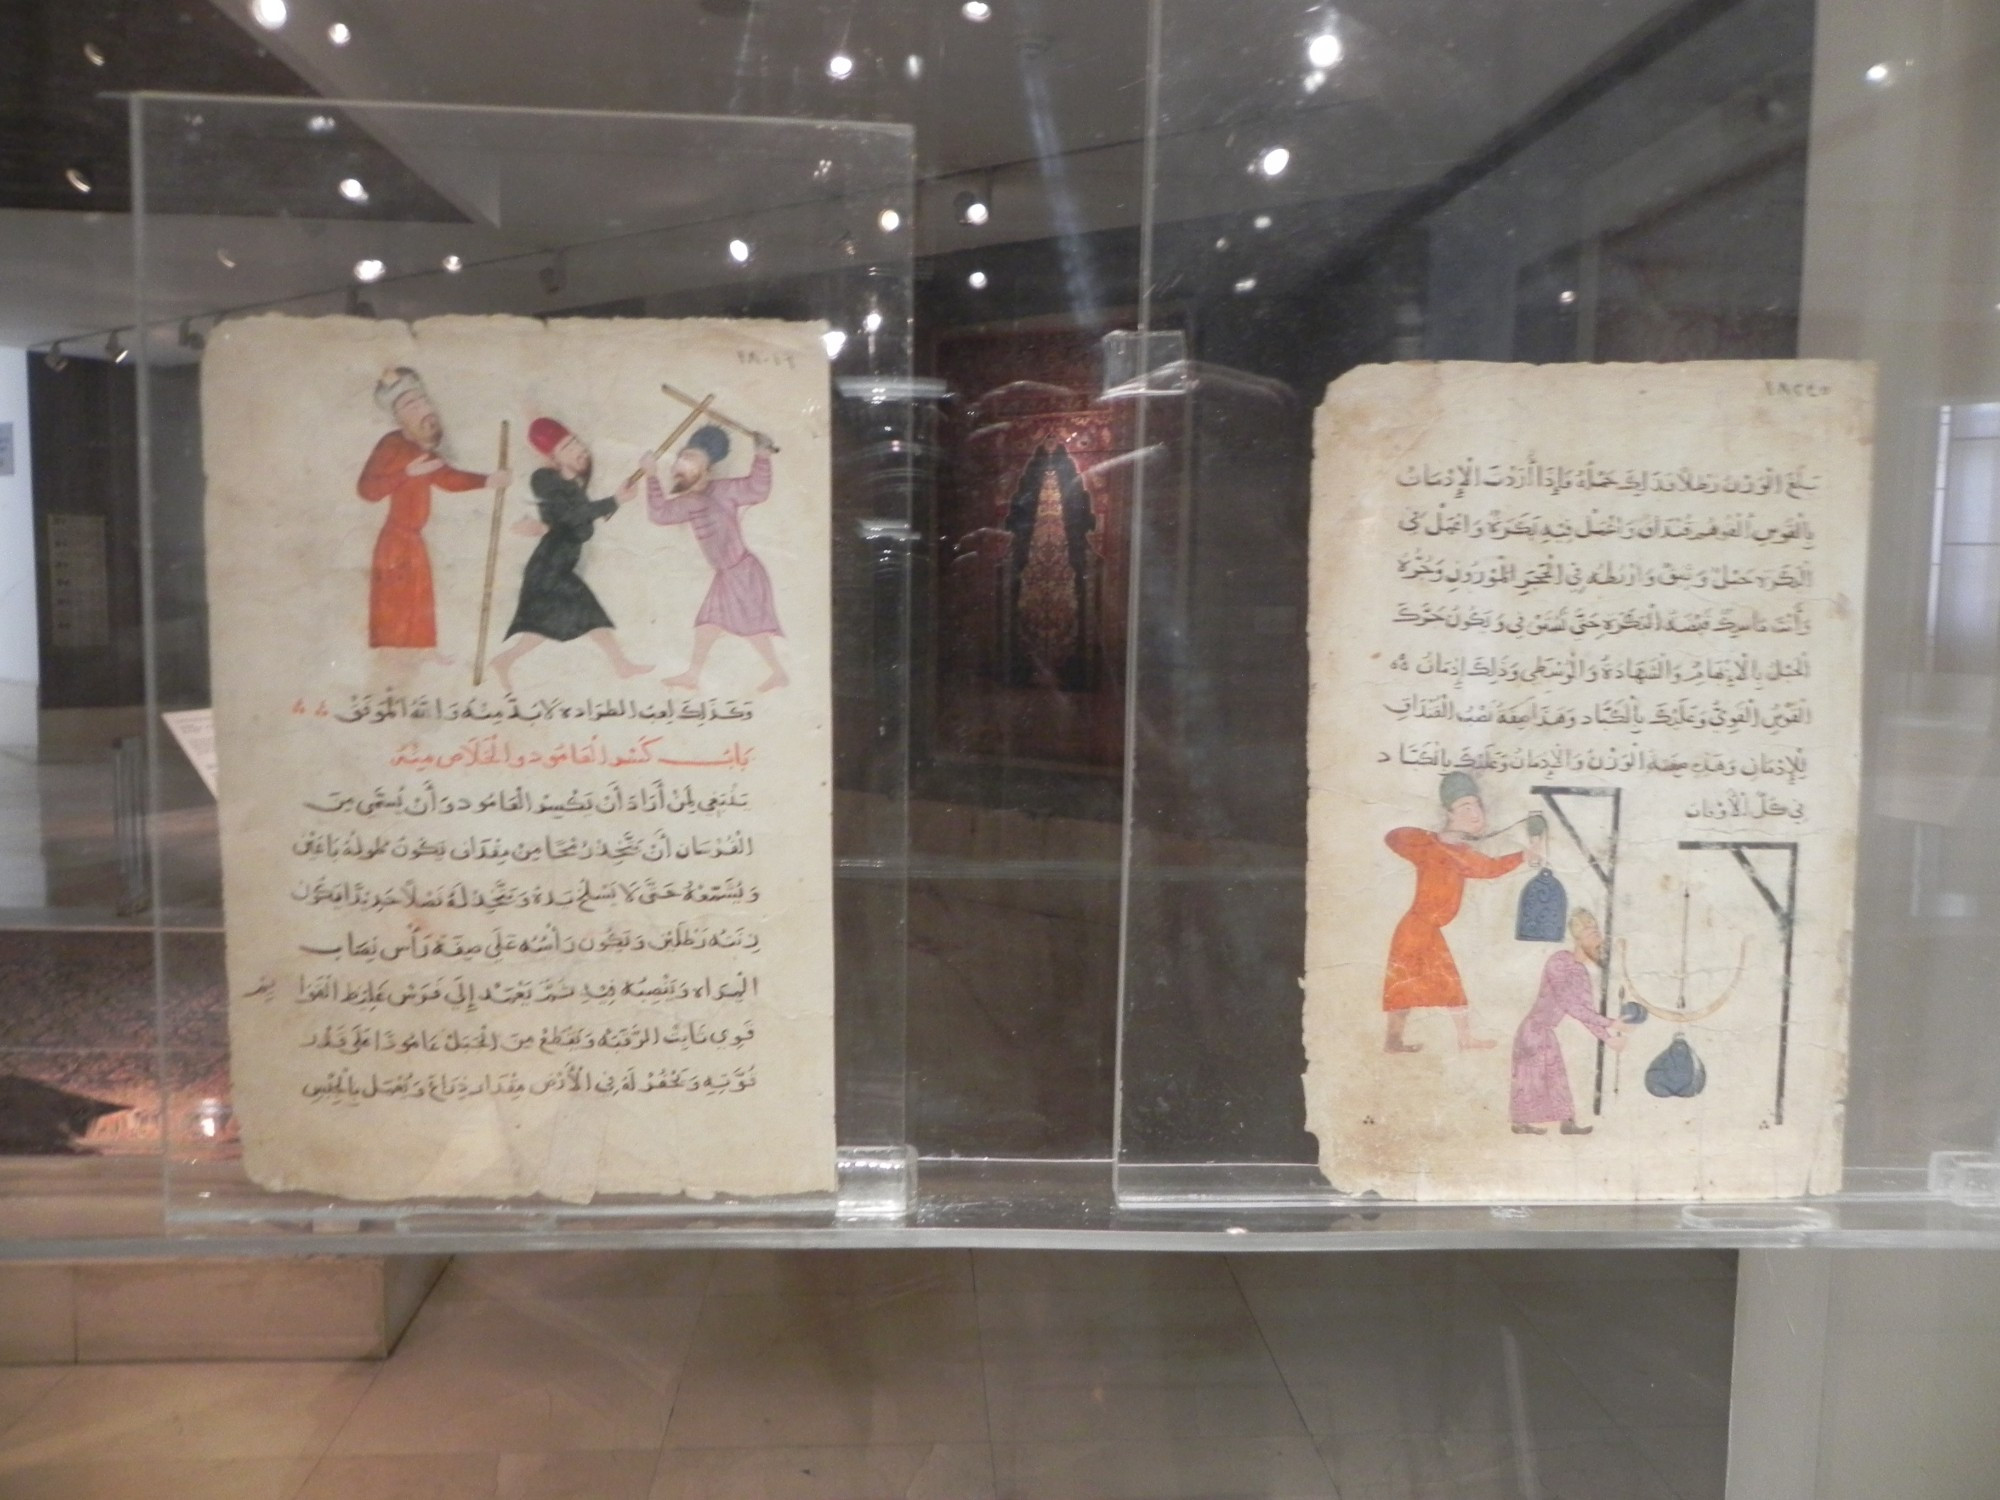 ١٨٠١٩
وَكَذَلِكَ لِعبُ الطراده لَا بُدَّ مِنْهُ وَاللهُ الْمُوَفِّقُ
بَابُ كَسْرِ الْعَامُودِ وَالْخَلَاصِ مِنْهُ
يَنْبَغِي لِمَنْ أَرَادَ أَنْ يَكْسِرَ الْعَامُودَ وَأَنْ يُسَمَّى مِنَ
الْفُرْسَانِ أَنْ يَتَّخِذَ رُمْحًا مِنْ مُرَّانٍ يَكُونُ طُولُهُ بَاعَيْنِ
وَيُشَمِّعُهُ حَتَّى لَا يَسْلَخَ يَدَهُ وَيَتَّخِذْ لَهُ نَصْلًا حَدِيدًا يَكُونُ
زِنَتُهُ رَطْلَيْنِ وَيَكُونُ رَأْسُهُ عَلَى صِفَةِ رَأْسِ نِصَابِ
وَيَنْصِبُهُ فِيهِ ثُمَّ يَعْمَدُ إِلَى فَرَسٍ غَلِيظِ الْقَوَا يِم
قَوِي ثَابِتِ الرَّقَبَهِ وَيَقْطَعُ مِنَ الْجَبَلِ عَامُودًا عَلَى قَدْرِ
قُوَّتِهِ وَيَحْفُرْ لَهُ فِي الْأَرْضِ مِقْدَارَ ذِرَاعٍ وَيُعْمَل بِالْجِبْسِ
بَلَغَ الْوَزْنُ رَطْلًا فَذَلِكَ حَمْلُهُ فَإِذَا أَرَدْتَ الْإِدْمَانُ
بِالْقَوْسِ قُنْدَاقٌ وَاعْمَلْ فِيهِ بَكَرَةً وَاعْمَلْ فِي
الْبَكَرَهِ حَبْلٌ وَثِيقٌ وَارْبُطْهُ فِي الْحَجَرِ الْمَوْزُونِ وَجُرَّهُ
وَأَنْتَ مَاسِكٌ قَبْضَةَ الْبَكَرَهِ حَتَّى وَيَكُونُ جَرَّكَ
الْحَبْلَ بِالْإِبْهَامِ وَالشَّهَادَةُ وَالْوُسْطَى وَذَلِكَ إِدْمَانُ
الْقَوْسِ الْقَوِيِّ وَعَلَيْكَ بِالْكَبَّادِ وَهَذَا صِفَةُ نَصْبُ الْقُنْدَاقِ
لِلْإِدْمَانِ وَهَذِهِ صِفَةُ الْوَزْنُ وَالْإِدْمَانُ وَعَلَيْكَ بِالْكَبَّادِ
فِي كُلِّ الْأَوْقَاتِ